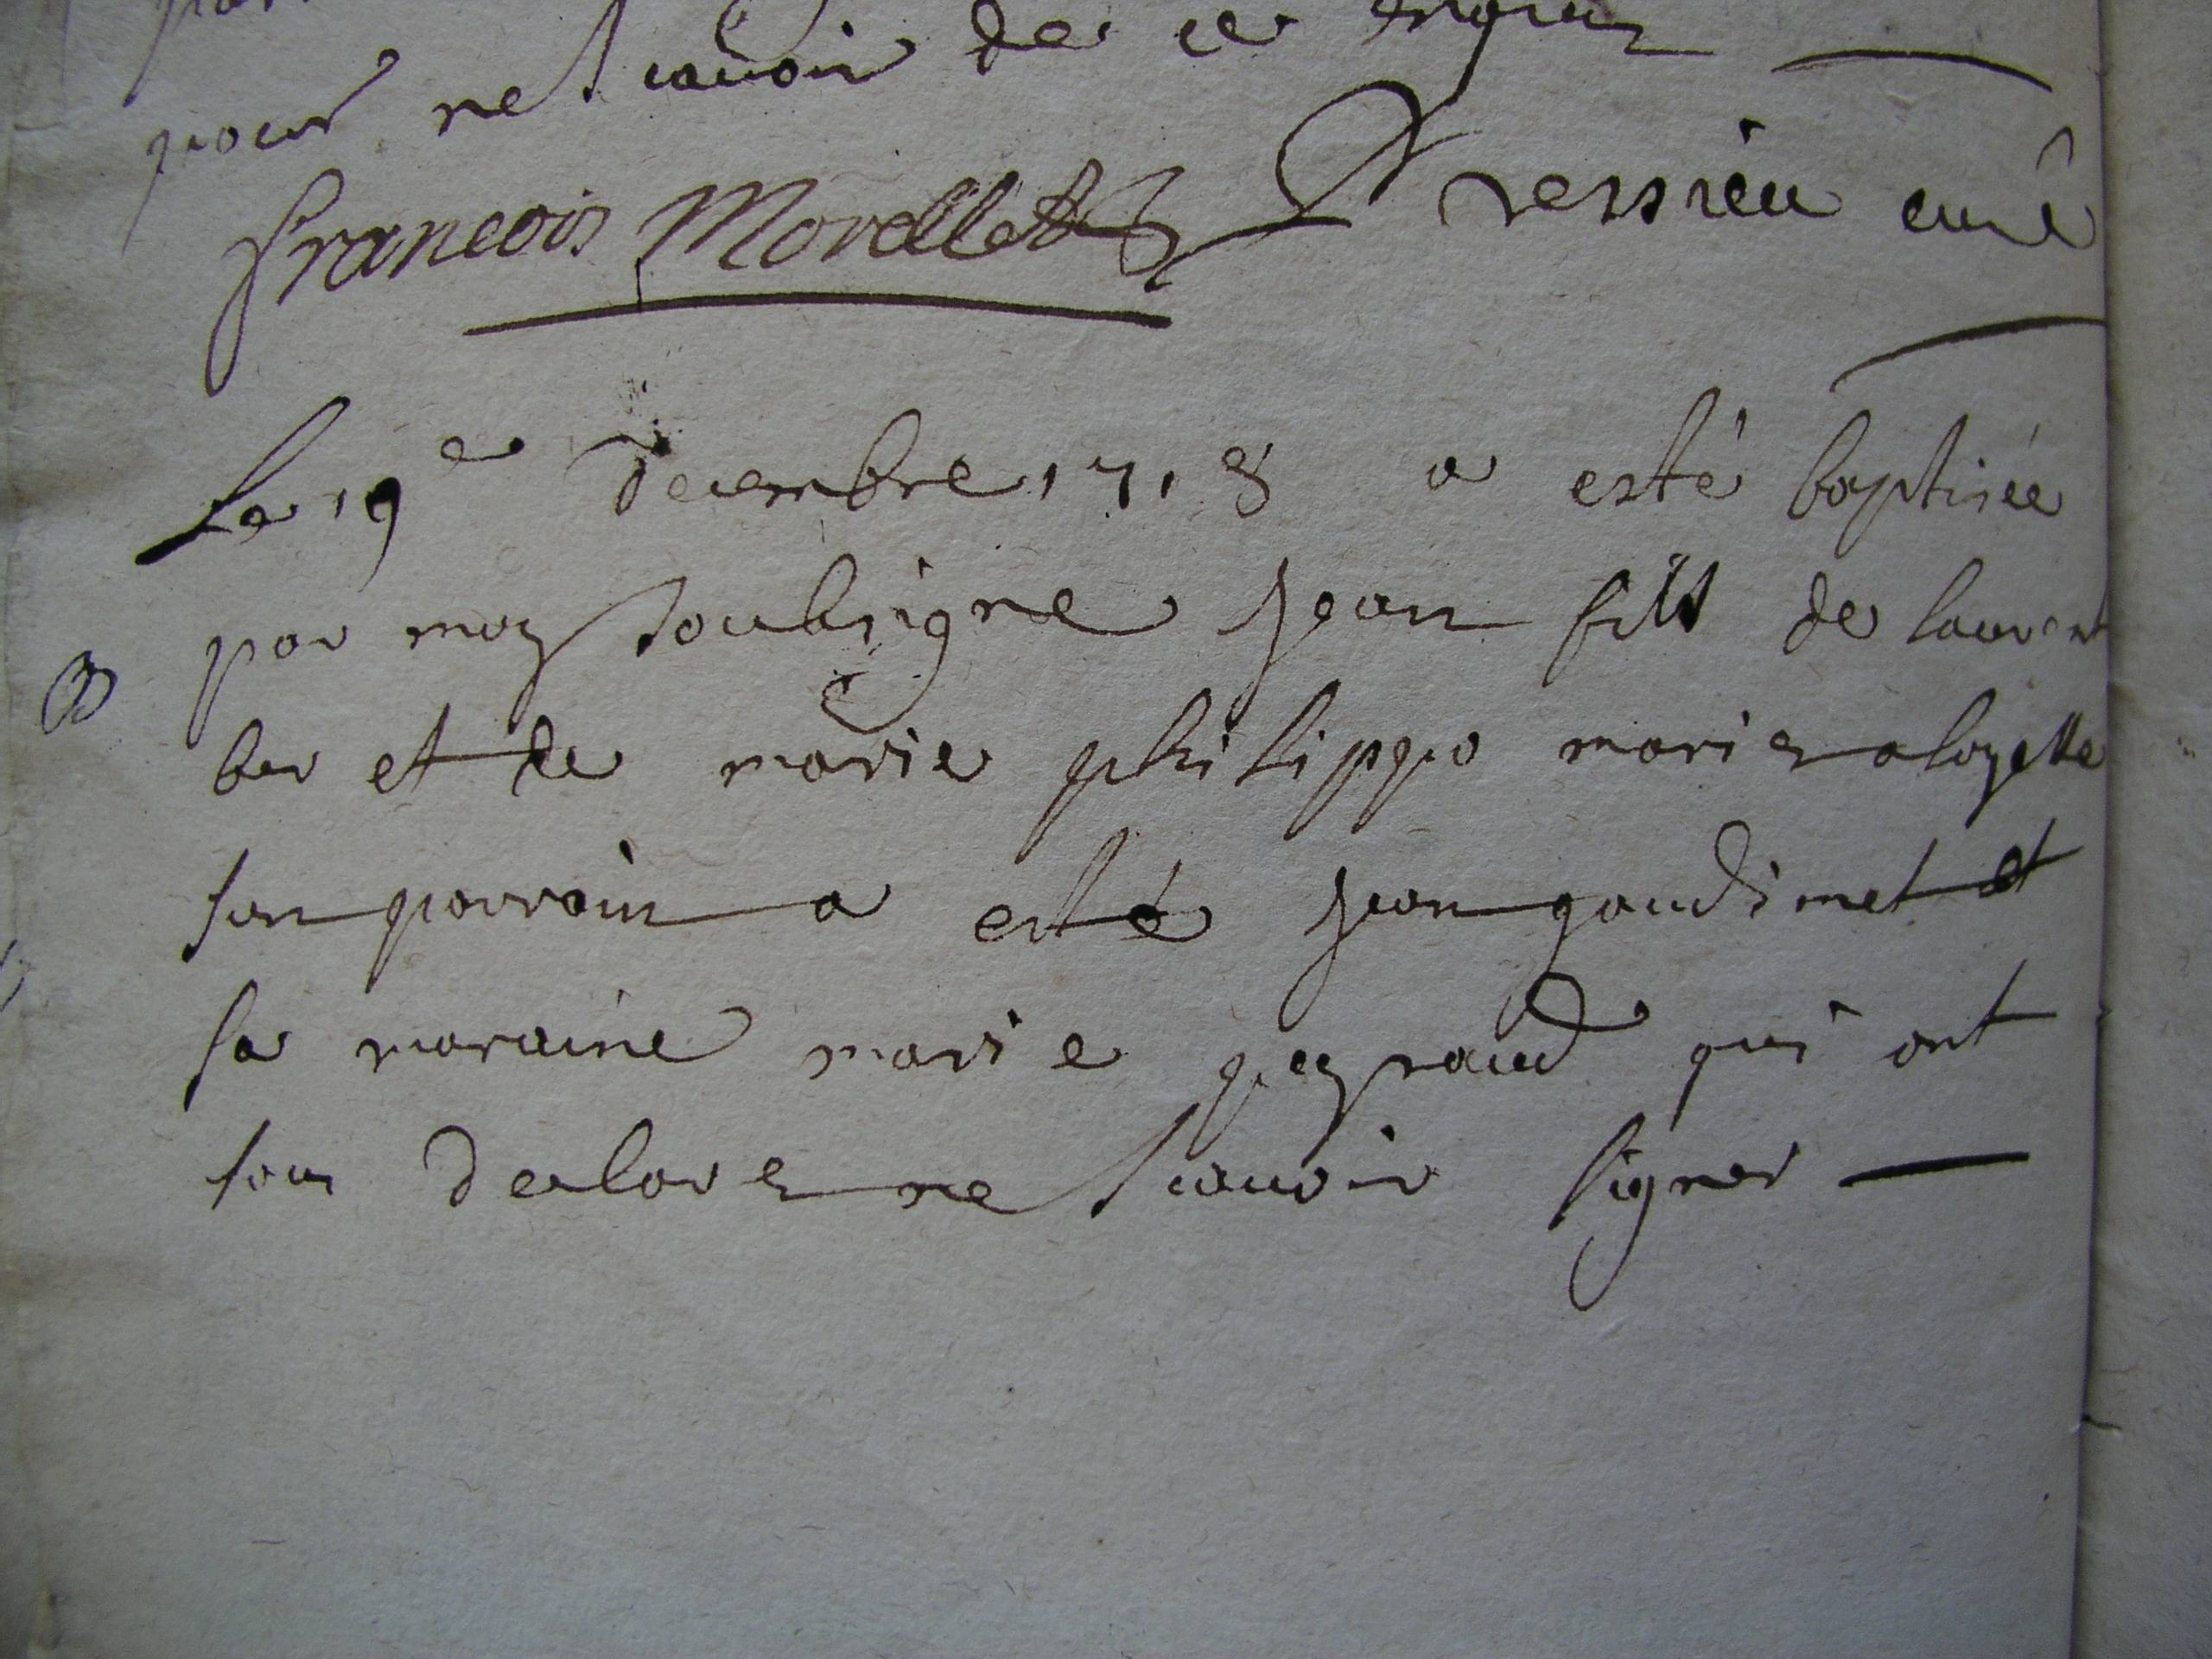 pour ne scavoir de ce enquis
francois Morellet Dressieu curé
Le 19e decembre 1718 a esté baptisée
par moy soubsigne Jean fils de laurent
B
ber et de marie philippo mariez a loyette
son parrain a esté Jean gaudimet et
sa maraine marie peyraud qui ont
tous declarez ne scavoir signer